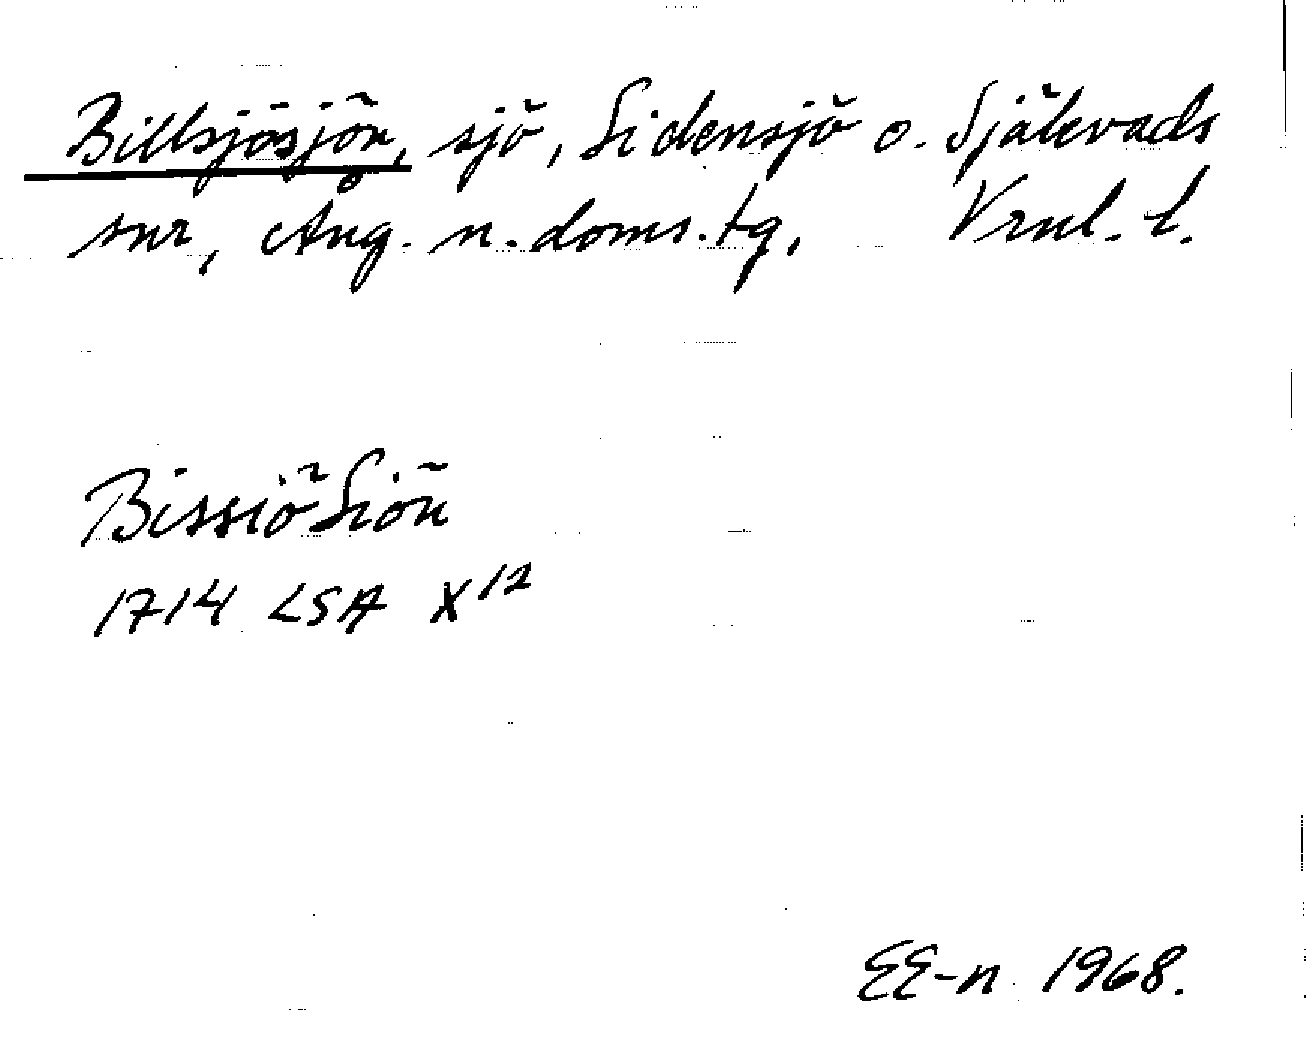 Billsjösjön, sjö, Sidensjö o. Själevads
snr, Ång. n. doms.tg, Vrnl. l.
Bissiö Siön
1714 LSA X 12
EE-n 1968.